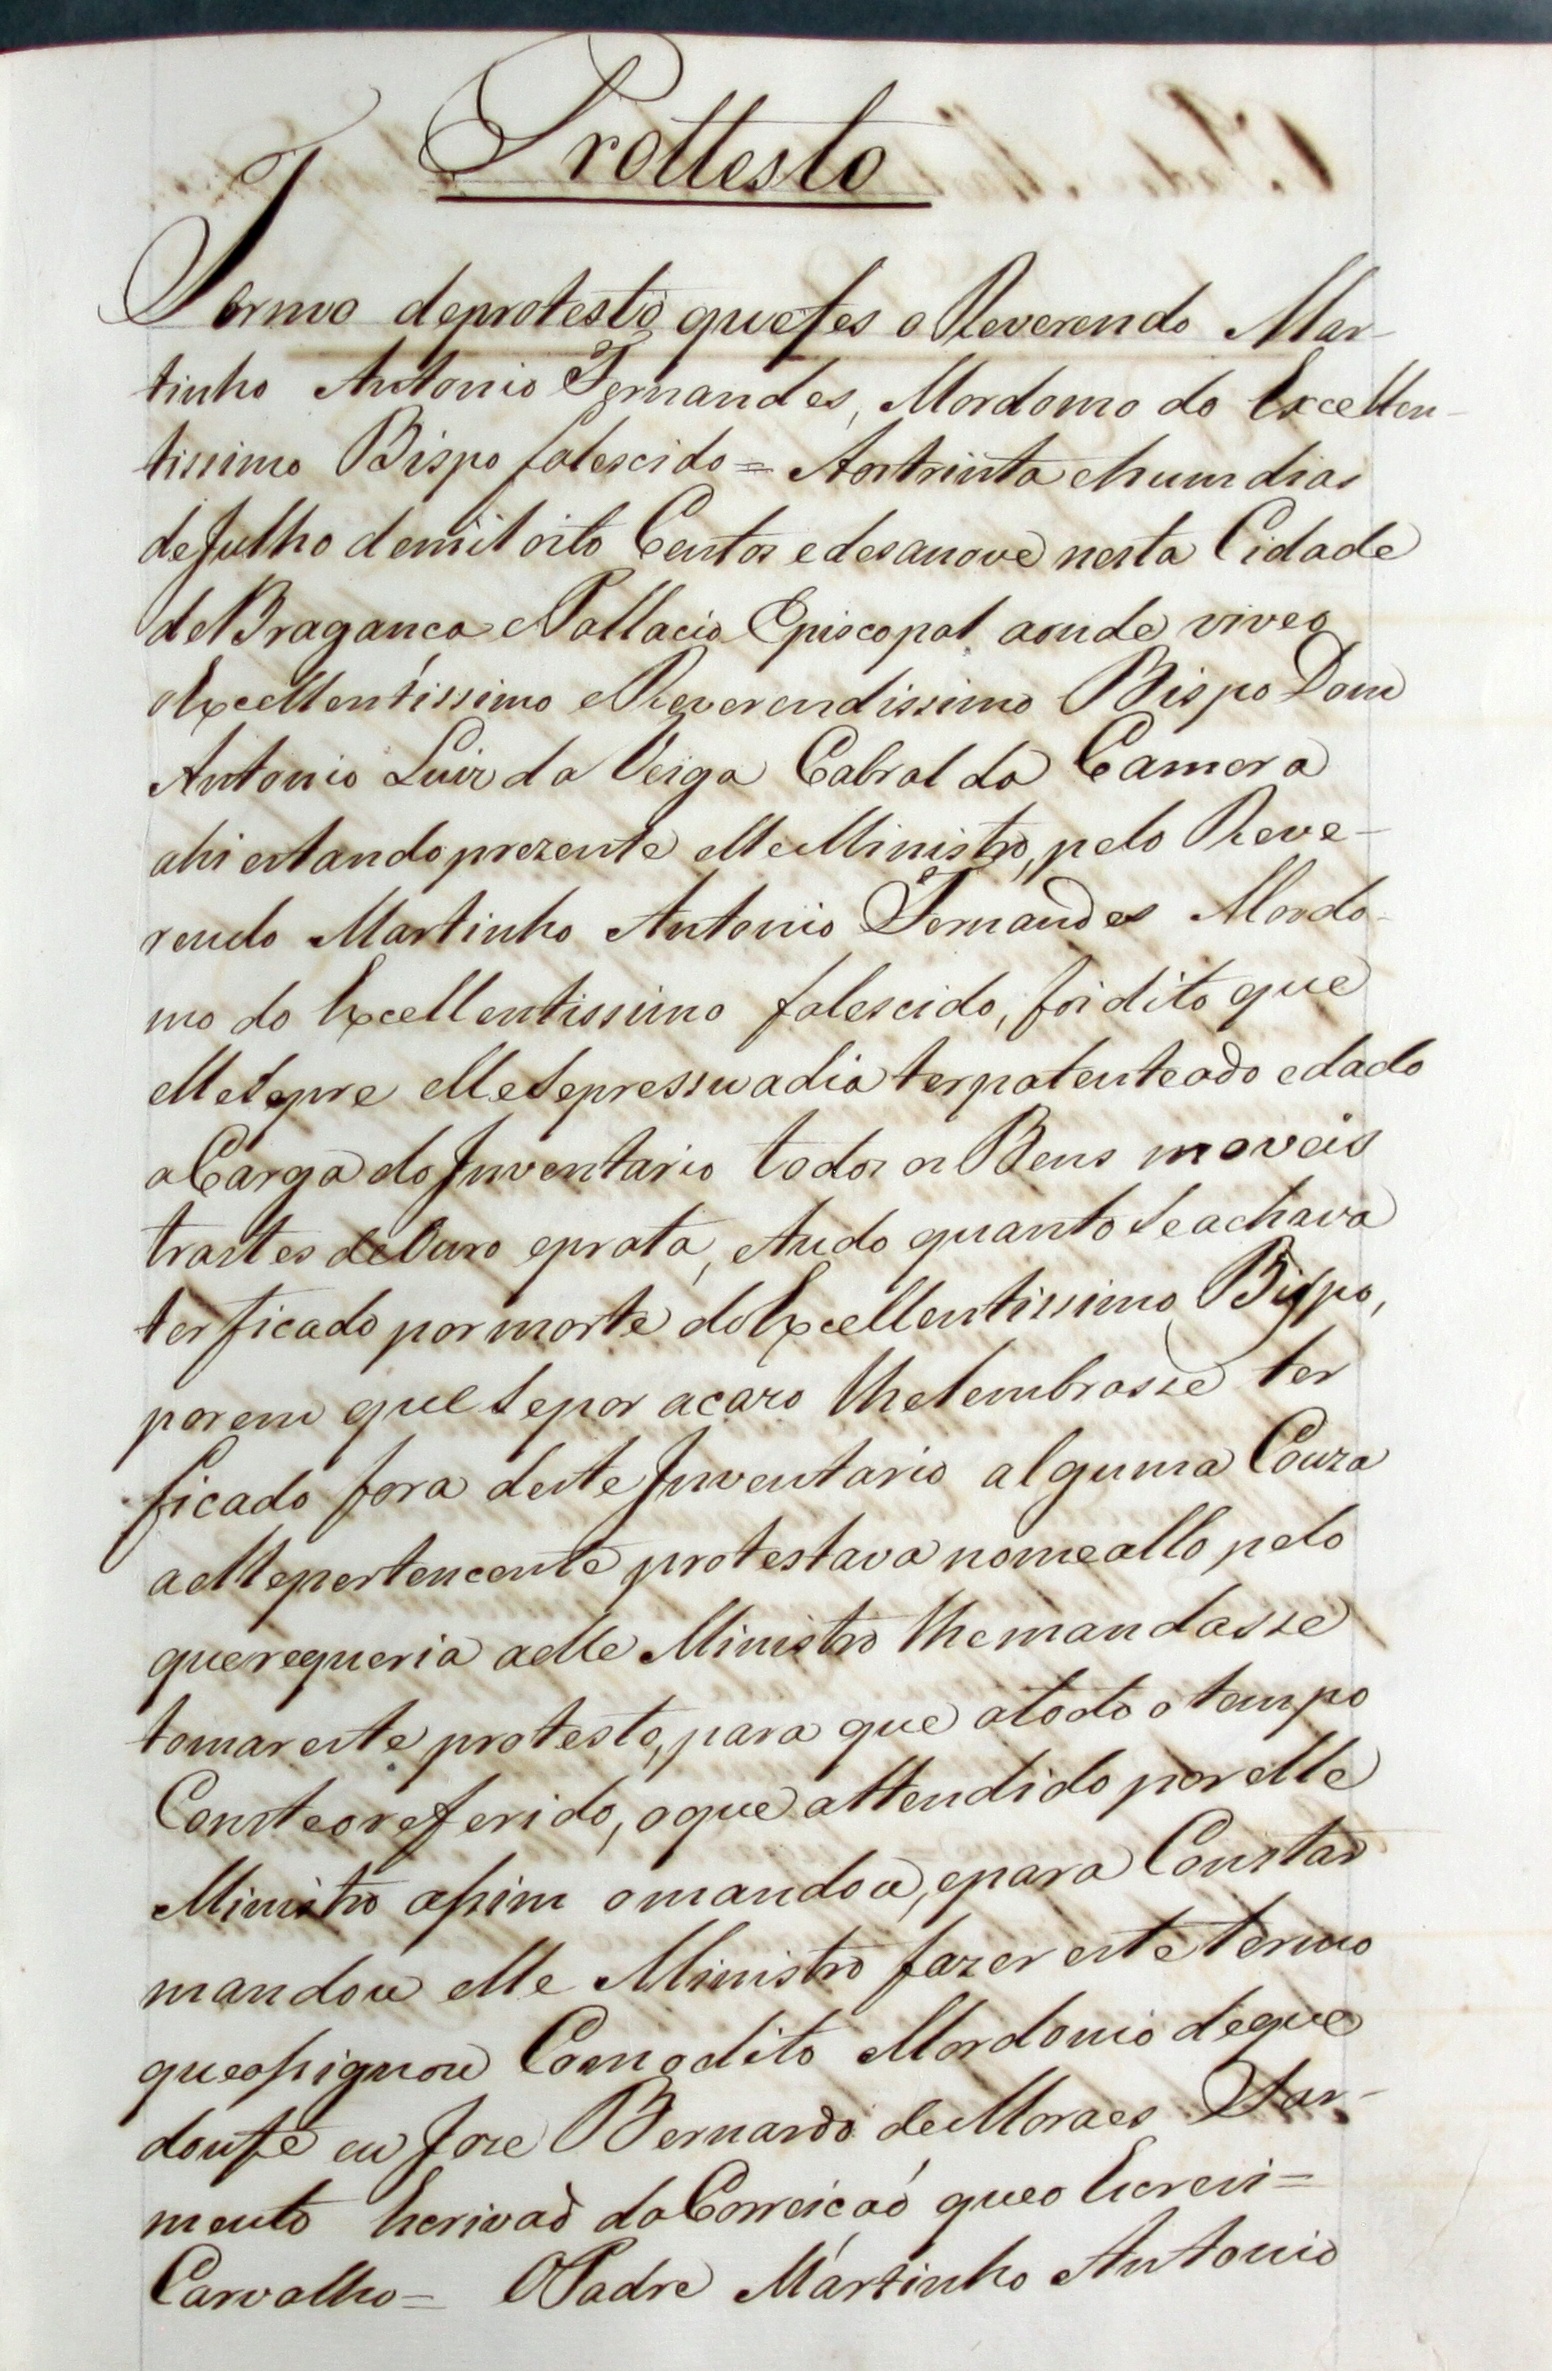 Prottesto
Termo deprotesto quefes o Reverendo Mar-
tinho Antonio Fernandes, Mordomo do Excellen-
tissimo Bispo falescido = Aostrinta ehum dias
deJulho demil oito Centos edesanove nesta Cidade
deBraganca ePallacio Episcopal aonde viveo
oExcellentissimo eReverendissimo Bispo Dom
Antonio Luiz da Veiga Cabral da Camera
ahi estando prezente elle Ministro, pelo Reve-
rendo Martinho Antonio Fernandes Mordo-
mo do Excellentissimo falescido, foi dito que
elle Sepre elleSepressuadia terpatenteado edado
aCarga doJnventario todos os Bens moveis
trastes deOuro eprata, etudo quanto Seachava
terficado pormorte doExcellentissimo Bispo,
porem que Sepor acazo lhelembrasse ter
ficado fora desteJnventario alguma Couza
aellepertencente protestava nomeallo pelo
querequeria aelle Ministro lhemandasse
tomareste protesto, para que atodo otempo
Consteoreferido, oque attendido porelle
Ministro assim omandou, epara Constar
mandou elle Ministro fazer este termo
queassignou Comodito Mordomo deque
doufé eu Joze Bernardo deMoraes Sar-
mento Escrivaõ daCorreicaõ queo Escrevi =
Carvalho = OPadre Martinho Antonio